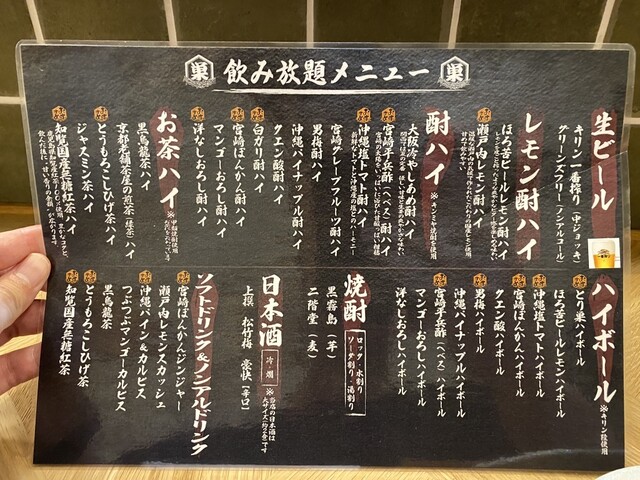 巣 飲み放題メニュー 巣
生ビール
キリン一番搾り(中ジョッキ)
グリーンズフリー(ノンアルコール)
レモン酎ハイ
ほろ苦ビールレモン酎ハイ
瀬戸内レモン酎ハイ
酎ハイ
大阪冷やしあめ酎ハイ
宮崎平兵酢(ヘベス)酎ハイ
沖縄塩トマト酎ハイ
宮崎グレープフルーツ酎ハイ
男梅酎ハイ
沖縄パイナップル酎ハイ
クエン酸酎ハイ
白ガリ酎ハイ
宮崎ぽんかん酎ハイ
マンゴーおろし酎ハイ
洋なしおろし酎ハイ
お茶ハイ
※甲類焼酎使用
黒烏龍茶ハイ
京都老舗茶屋の煎茶(緑茶)ハイ
とうもろこしひげ茶ハイ
ジャスミン茶ハイ
知覧国産無糖紅茶ハイ
ハイボール
※キリン陸使用
とり巣ハイボール
ほろ苦ビールレモンハイボール
沖縄塩トマトハイボール
宮崎ぽんかんハイボール
クエン酸ハイボール
男梅ハイボール
沖縄パイナップルハイボール
宮崎平兵酢(ヘベス)ハイボール
マンゴーおろしハイボール
洋なしおろしハイボール
焼酎
ロック・水割り
ソーダ割り・湯割り
黒霧島(芋)
二階堂(麦)
日本酒
冷・燗
上撰 松竹梅 豪快(辛口)
ソフトドリンク&ノンアルドリンク
宮崎ぽんかんジンジャー
瀬戸内レモンスカッシュ
沖縄パイン&カルピス
つぶつぶマンゴーカルピス
黒烏龍茶
とうもろこしひげ茶
知覧国産無糖紅茶